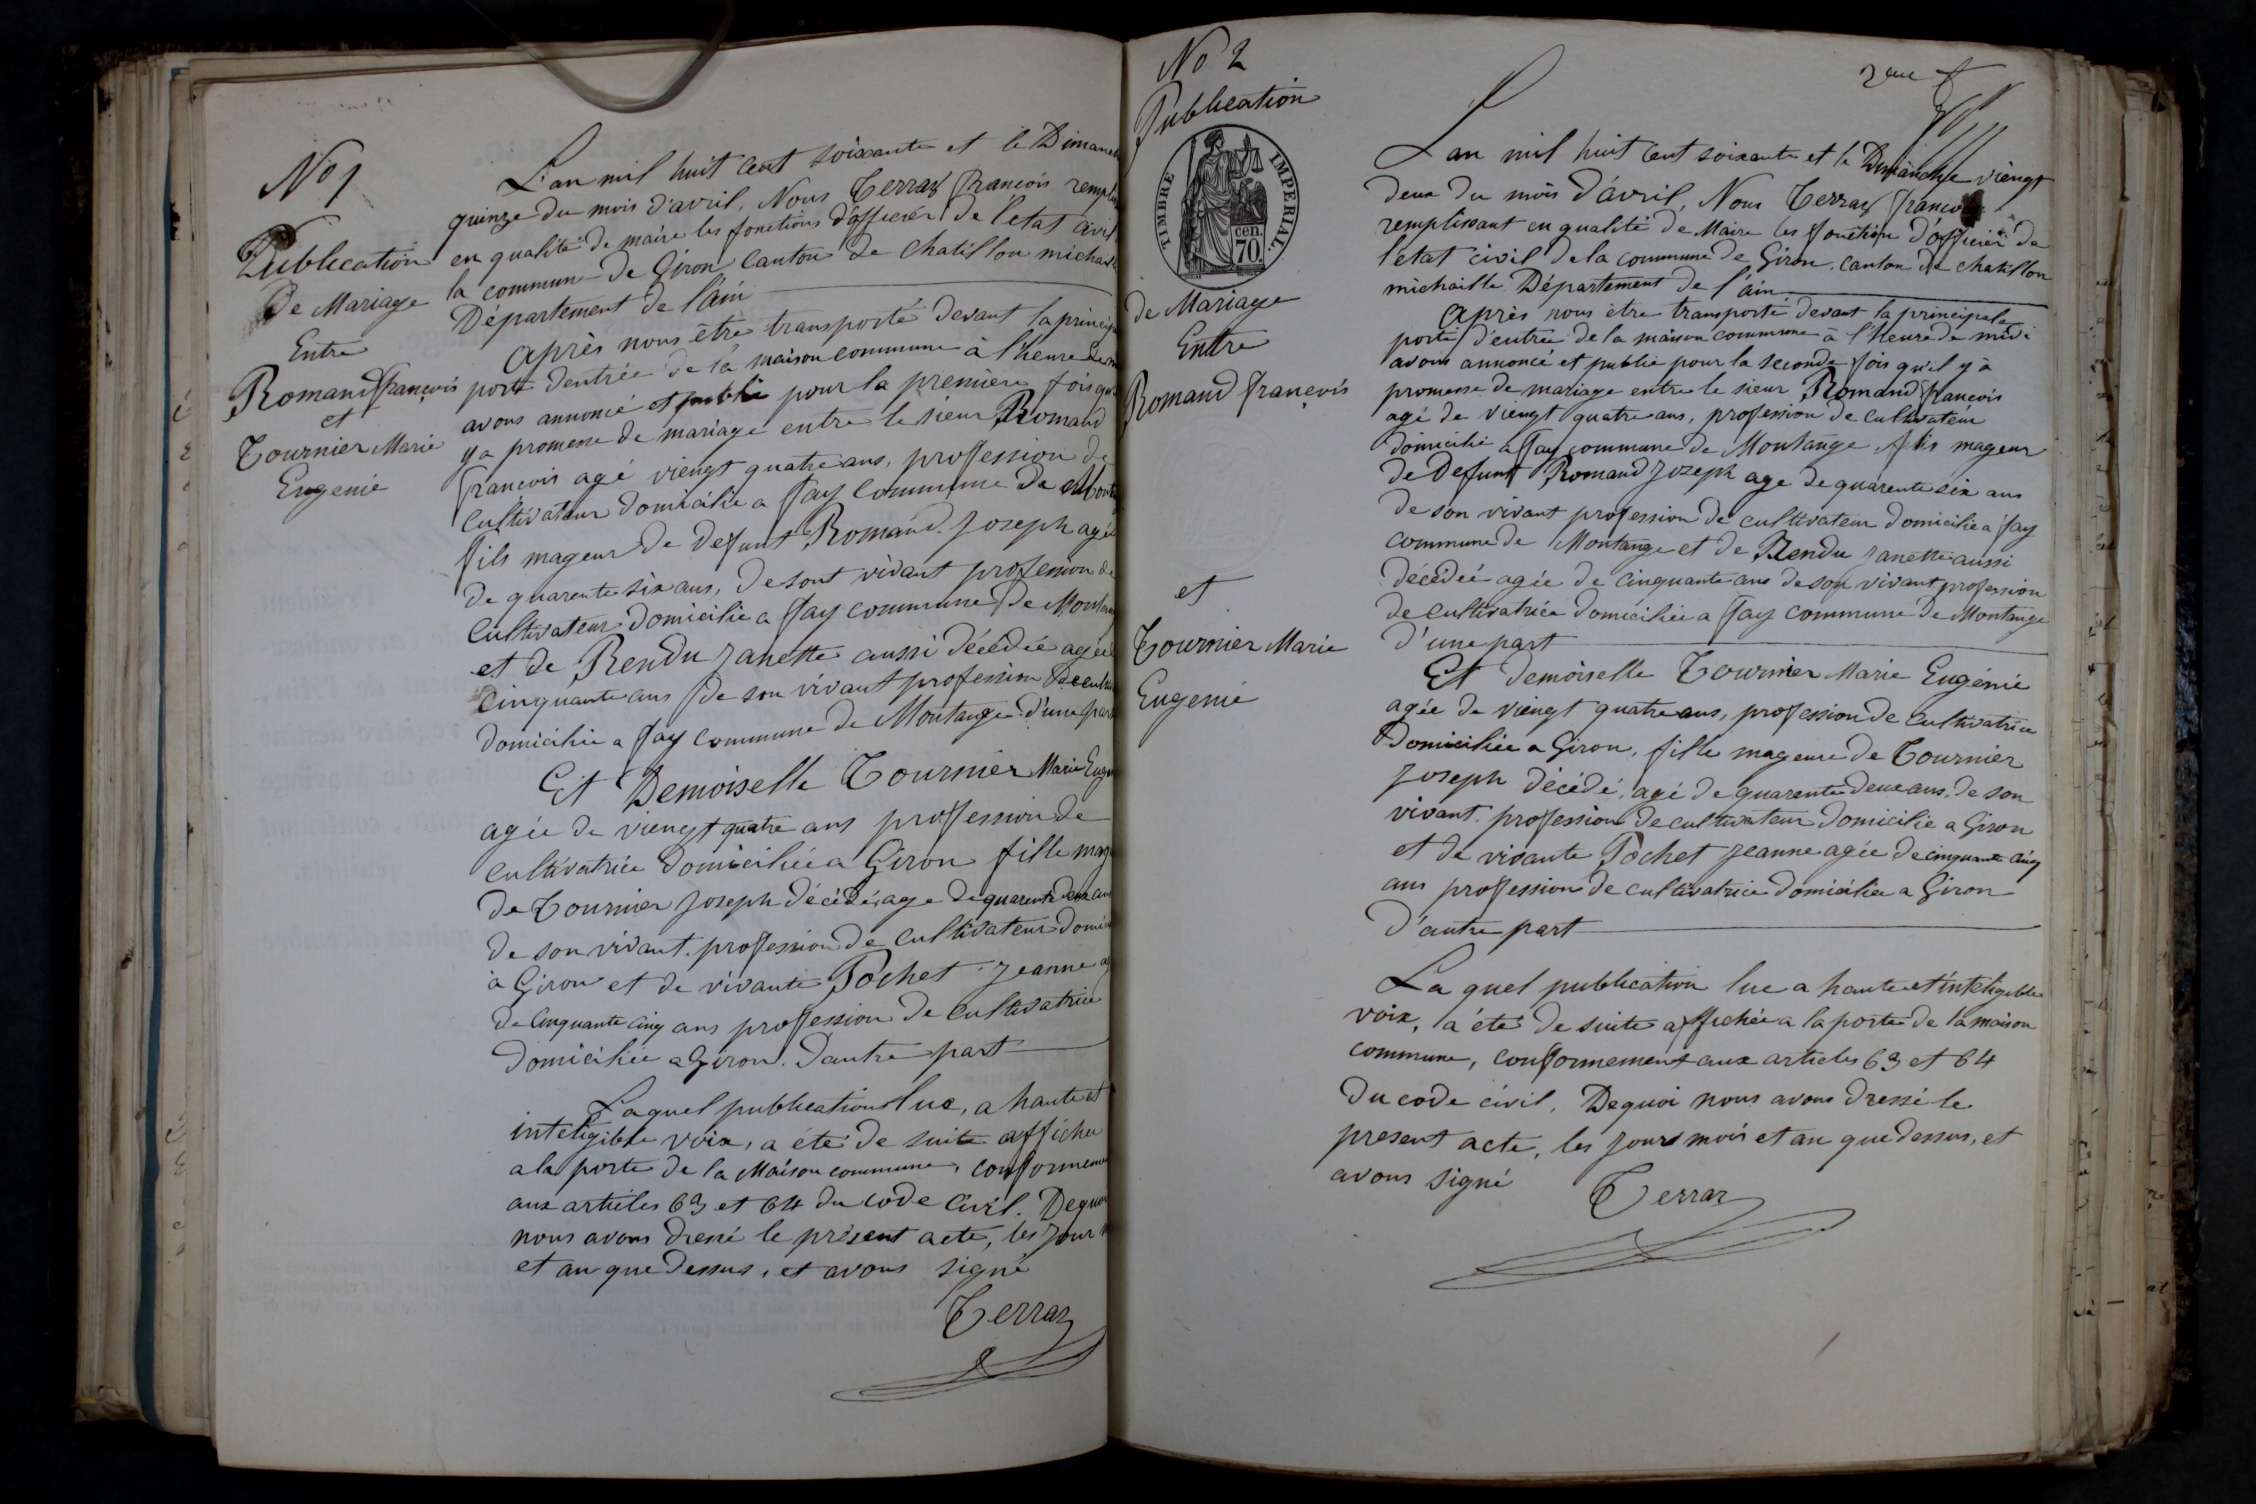 No 1
Publication
de Mariage
Entre
Romand françois
et
Tournier Marie
Eugenie
L'an mil huit cent soixante et le Dimanch
quinze du mois d'avril, Nous Terraz françois rempli
en qualité de maire les fonctions d'officier de l'etat civil
la commune de Giron canton de chatillon michail
Département de l'ain
Après nous être transporté devant la princip
porte d'entrée de la maison commune à l'heure de m
avons annoncé et publié pour la première fois qu
y a promesse de mariage entre le sieur Romand
françois agé viengt quatre ans, profession de
cultivateur domicilié a fay commune de Monta
fils mageur de defunt Romand Joseph agé
de quarente six ans, de sont vivant profession de
cultivateur domicilie a fay commune de Montan
et de Rendu Janette aussi décédée agée
cinquante ans de son vivant profession de cultiv
domiciliee a fay commune de Montange d'une part
Et Demoiselle Tournier Marie Euge
agée de viengt quatre ans proffession de
cultivatrice domiciliée a Giron fille mag
de Tournier Joseph décédé, age de quarente deux ans
de son vivant. proffession de cultivateur domic
à Giron et de vivante Pochet Jeanne ag
de cinquante cinq ans proffession de cultivatrice
domiciliée a Giron. d'autre part
Laquel publication lue, a haute et
inteligible voix, a été de suite affichee
a la porte de la Maison commune, conformeme
aux articles 63 et 64 du code civil. Dequoi
nous avons dressé le présent acte, les jour m
et an que dessus, et avons signé
Terraz
No 2
Publication
TIMBRE IMPERIAL.
70 cen.
de Mariage
Entre
Romand françois
et
Tournier Marie
Eugenie
2eme f
L'an mil huit cent soixante et le Dimanche viengt
deux du mois d'avril, Nous Terraz françois
remplissant en qualité de Maire les fonction d'officier de
l'etat civil de la commune de Giron. canton de chatillon
michaille Département de l'ain
Après nous être transporté devant la principale
porte d'entrée de la maison commune à l'heure de midi
avons annoncé et publié pour la seconde fois qu'il y à
promesse de mariage entre le sieur Romand françois
agé de viengt quatre ans, profession de cultivateur
domicilié a fay commune de Montange, fils mageur
de Defunt Romand Jozeph age de quarente six ans
de son vivant profession de cultivateur domicilie a fay
commune de Montange et de Rendu Janette aussi
décédeé agée de cinquante ans de son vivant profession
de cultivatrice domiciliée a fay commune de Montange
d'une part
Et demoiselle Tournier Marie Eugénie
agée de viengt quatre ans, profession de cultivatrice
domiciliée a Giron, fille mageure de Tournier
Joseph décédé, agé de quarente deux ans. de son
vivant. proffession de cultivateur domicilie a Giron
et de vivante Pochet Jeanne agée de cinquante cinq
ans proffession de cultivatrice domicilie a Giron
D'autre part
La quel publication lue a haute et inteligible
voix, a été de suite affichée a la porte de la maison
commune, conformement aux articles 63 et 64
du code civil. Dequoi nous avons dressé le
present acte, les jours mois et an que dessus, et
avons signé
Terraz